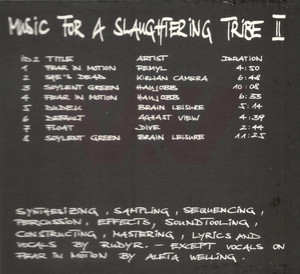 MUSIC FOR A SLAUGHTERING TRIBE II
ID2 TITLE ARTIST DURATION
1 FEAR IN MOTION REMYL 4:50
2 SHE'S DEAD KIRLIAN CAMERA 6:48
3 SOYLENT GREEN HAUJOBB 10:08
4 FEAR IN MOTION HAUJOBB 6:33
5 DUDEK BRAIN LEISURE 5:14
6 DEFAULT AGHAST VIEW 4:39
7 FLOAT DIVE 2:44
8 SOYLENT GREEN BRAIN LEISURE 11:25
SYNTHESIZING, SAMPLING, SEQUENCING,
PERCUSSION, EFFECTS, SOUNDTOOLING,
CONSTRUCTING, MASTERING, LYRICS AND
VOCALS BY RUDY R. – EXCEPT VOCALS ON
FEAR IN MOTION BY ALETA WELLING.